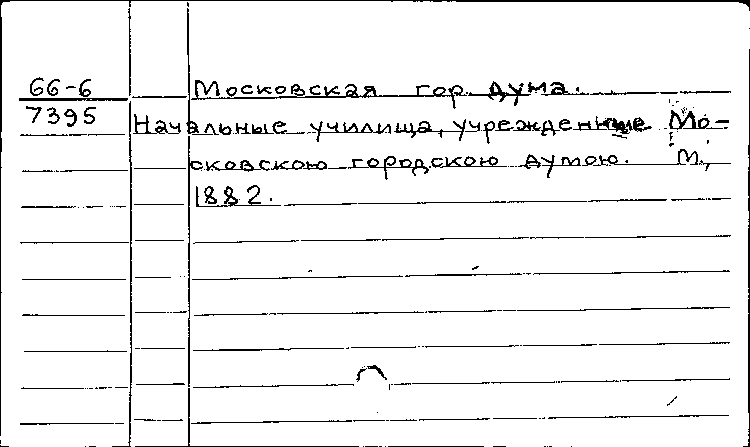 66-6 Московская гор. дума.
7395 Начальные училища, учрежденные Мо-
сковскою городскою думою. М.,
1882.